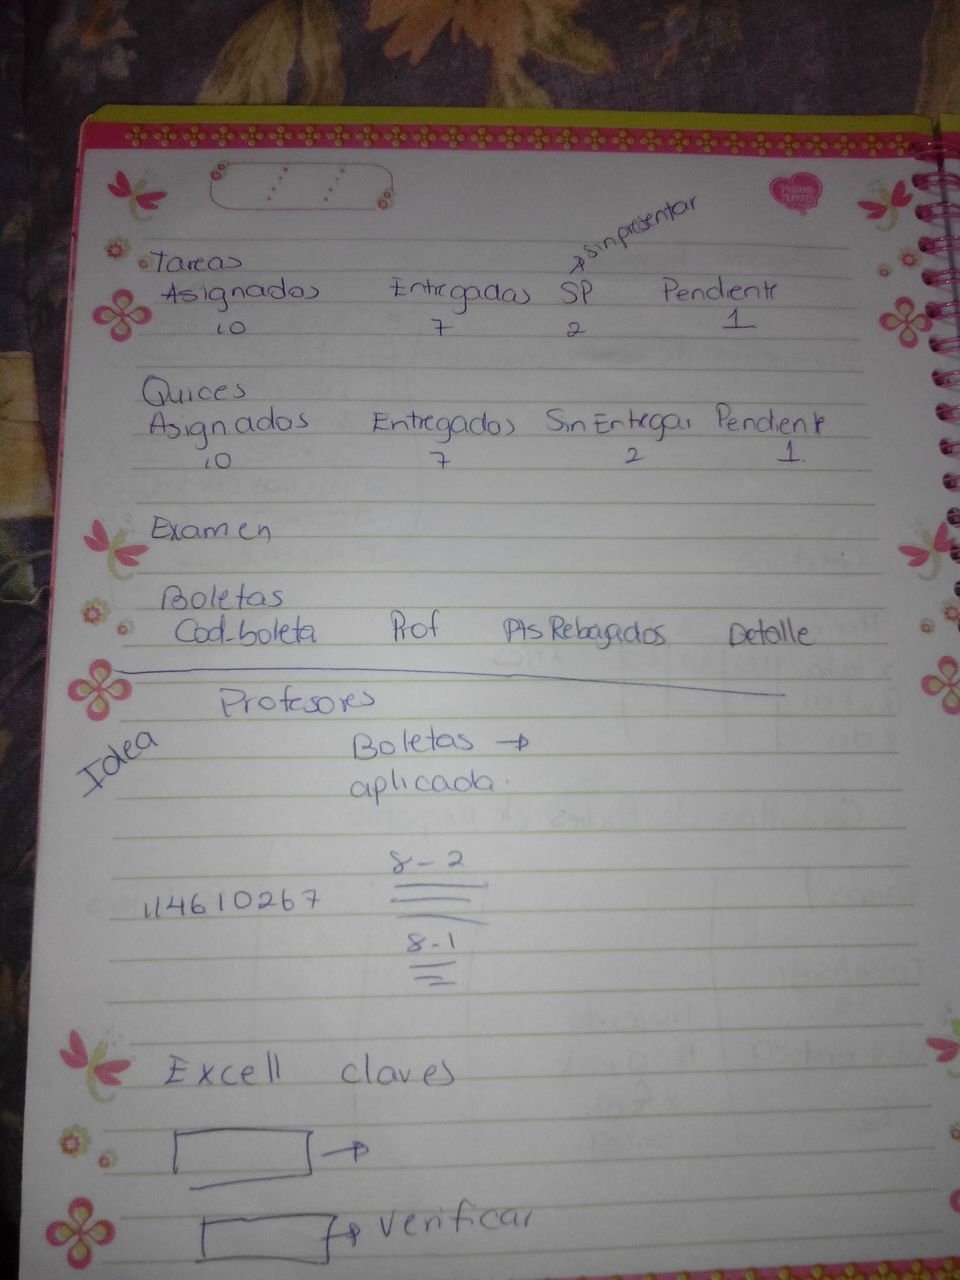 sin presentar
Tareas
Asignados Entregadas SP Pendiente
10 7 2 1
Quices
Asignadas Entregados Sin Entregar Pendiente
10 7 2 1.
Examen
Boletas
Cod-boleta Prof Pts Rebagados Detalle
Profesores
Idea
Boletas →
aplicada.
8-2
114610267
8-1
Excell claves
→
→ verificar